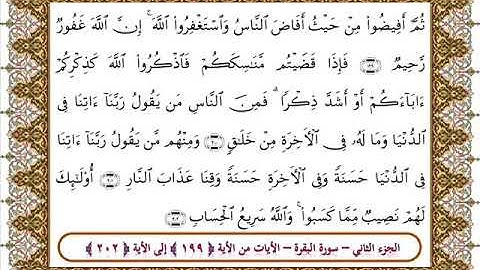 ثُمَّ أَفِيضُوا۟ مِنْ حَيْثُ أَفَاضَ ٱلنَّاسُ وَٱسْتَغْفِرُوا۟ ٱللَّهَ ۚ إِنَّ ٱللَّهَ غَفُورٌ
رَّحِيمٌ ۝١٩٩ فَإِذَا قَضَيْتُم مَّنَـٰسِكَكُمْ فَٱذْكُرُوا۟ ٱللَّهَ كَذِكْرِكُمْ
ءَابَآءَكُمْ أَوْ أَشَدَّ ذِكْرًا ۗ فَمِنَ ٱلنَّاسِ مَن يَقُولُ رَبَّنَآ ءَاتِنَا فِى
ٱلدُّنْيَا وَمَا لَهُۥ فِى ٱلْـَٔاخِرَةِ مِنْ خَلَـٰقٍ ۝٢٠٠ وَمِنْهُم مَّن يَقُولُ رَبَّنَآ ءَاتِنَا
فِى ٱلدُّنْيَا حَسَنَةً وَفِى ٱلْـَٔاخِرَةِ حَسَنَةً وَقِنَا عَذَابَ ٱلنَّارِ ۝٢٠١ أُو۟لَـٰٓئِكَ
لَهُمْ نَصِيبٌ مِّمَّا كَسَبُوا۟ ۚ وَٱللَّهُ سَرِيعُ ٱلْحِسَابِ ۝٢٠٢
الجزء الثاني – سورة البقرة – الآيات من الآية ﴿ ١٩٩ ﴾ إلى الآية ﴿ ٢٠٢ ﴾